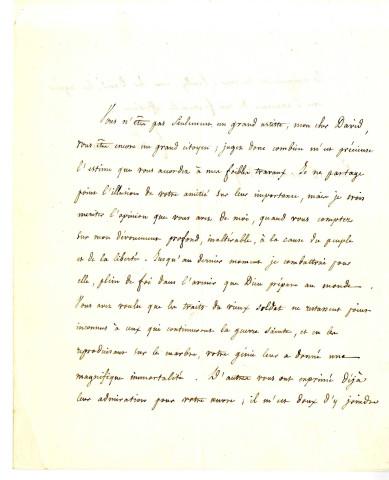 Vous n'êtes pas seulement un grand artiste, mon cher David,
vous êtes encore un grand citoyen ; jugez donc combien m'est précieuse
l'estime que vous accordez à mes faibles travaux. Je ne partage
point l'illusion de votre amitié sur leur importance, mais je crois
mériter l'opinion que vous avez de moi, quand vous comptez
sur mon dévouement profond, inaltérable, à la cause du peuple
et de la liberté. Jusqu'au dernier moment je combattrai pour
elle, plein de foi dans l'avenir que Dieu prépare au monde.
Vous avez voulu que les traits du vieux soldat ne restassent point
inconnus à ceux qui continueront la guerre sainte, et en les
reproduisant sur le marbre, votre génie leur a donné une
magnifique immortalité. D'autres vous ont exprimé déjà
leur admiration pour votre œuvre ; il m'est doux d'y joindre